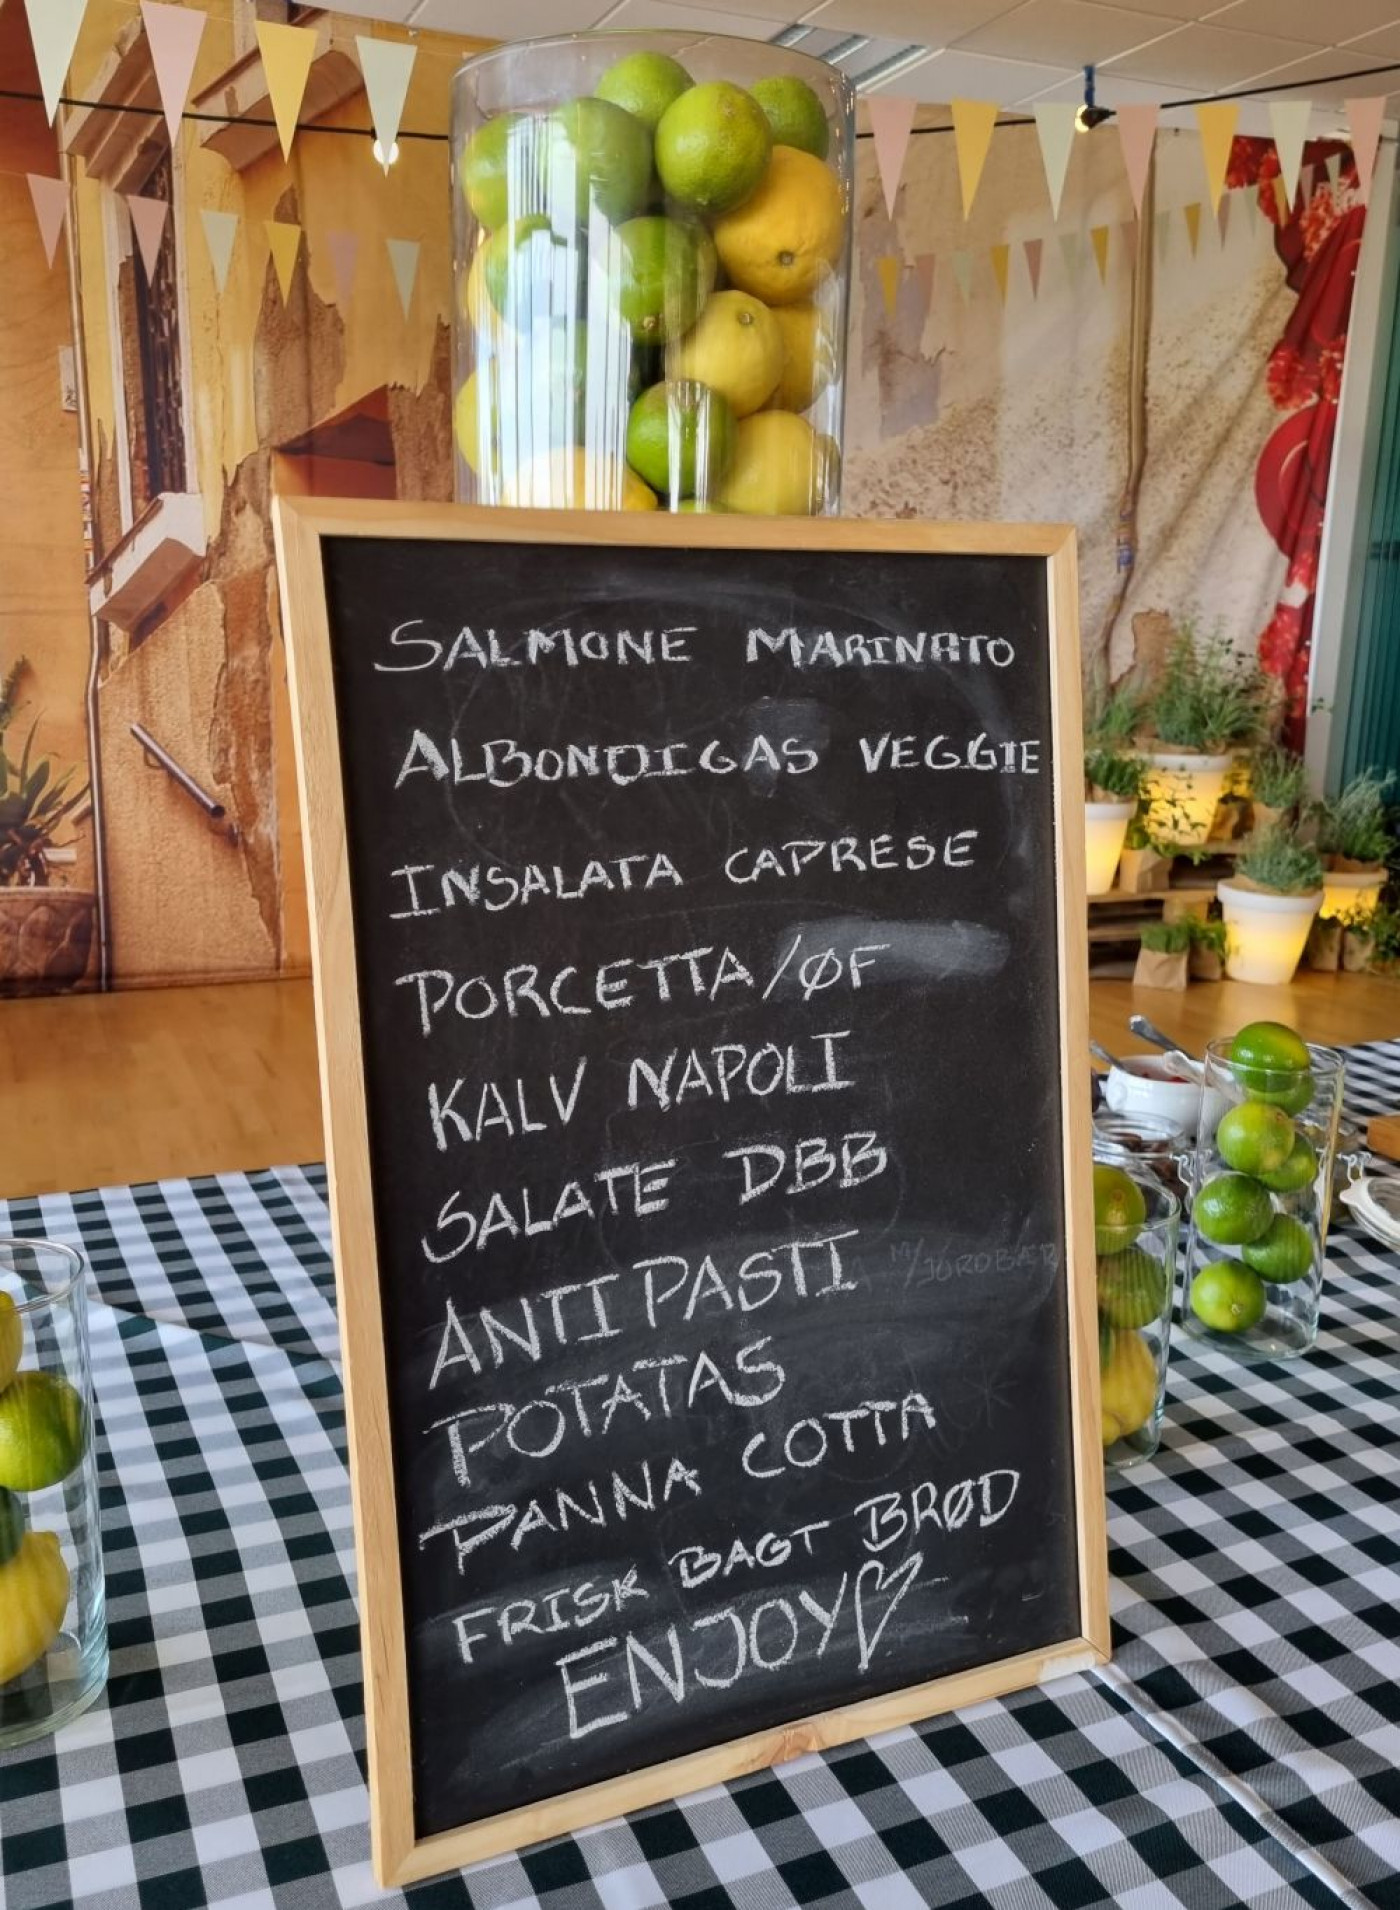 SALMONE MARINATO
ALBONDIGAS VEGGIE
INSALATA CAPRESE
PORCETTA/ØF
KALV NAPOLI
SALATE DBB
ANTIPASTI
POTATAS
PANNA COTTA
FRISK BAGT BRØD
ENJOY